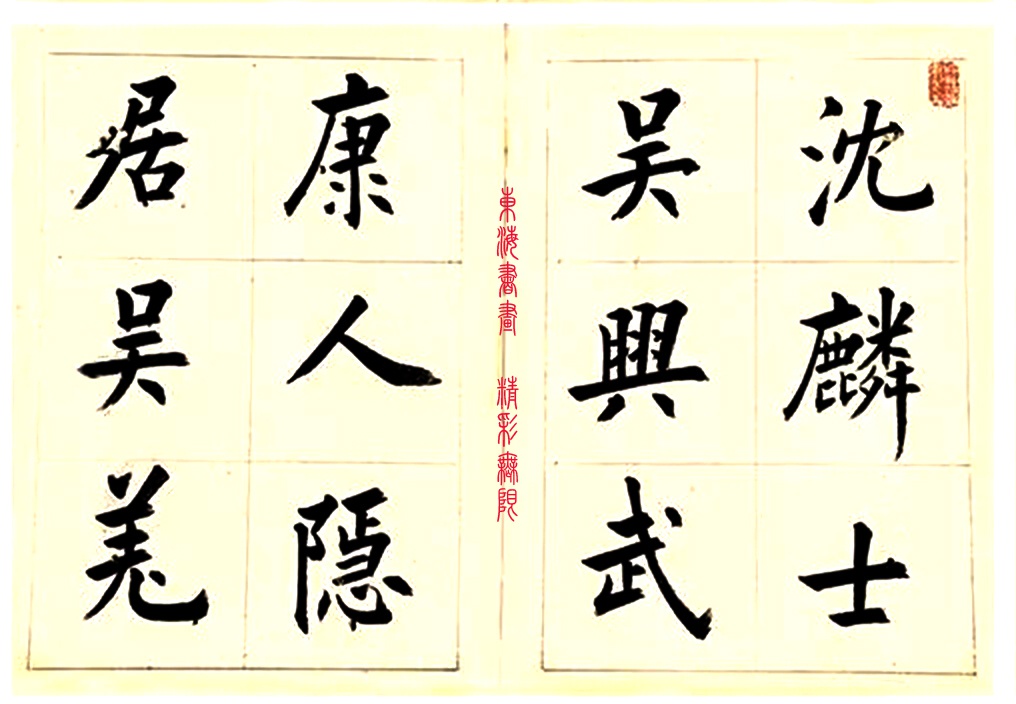 沈麟士
吴興武
東海書畫 精彩無限
康人隱
居吴羌